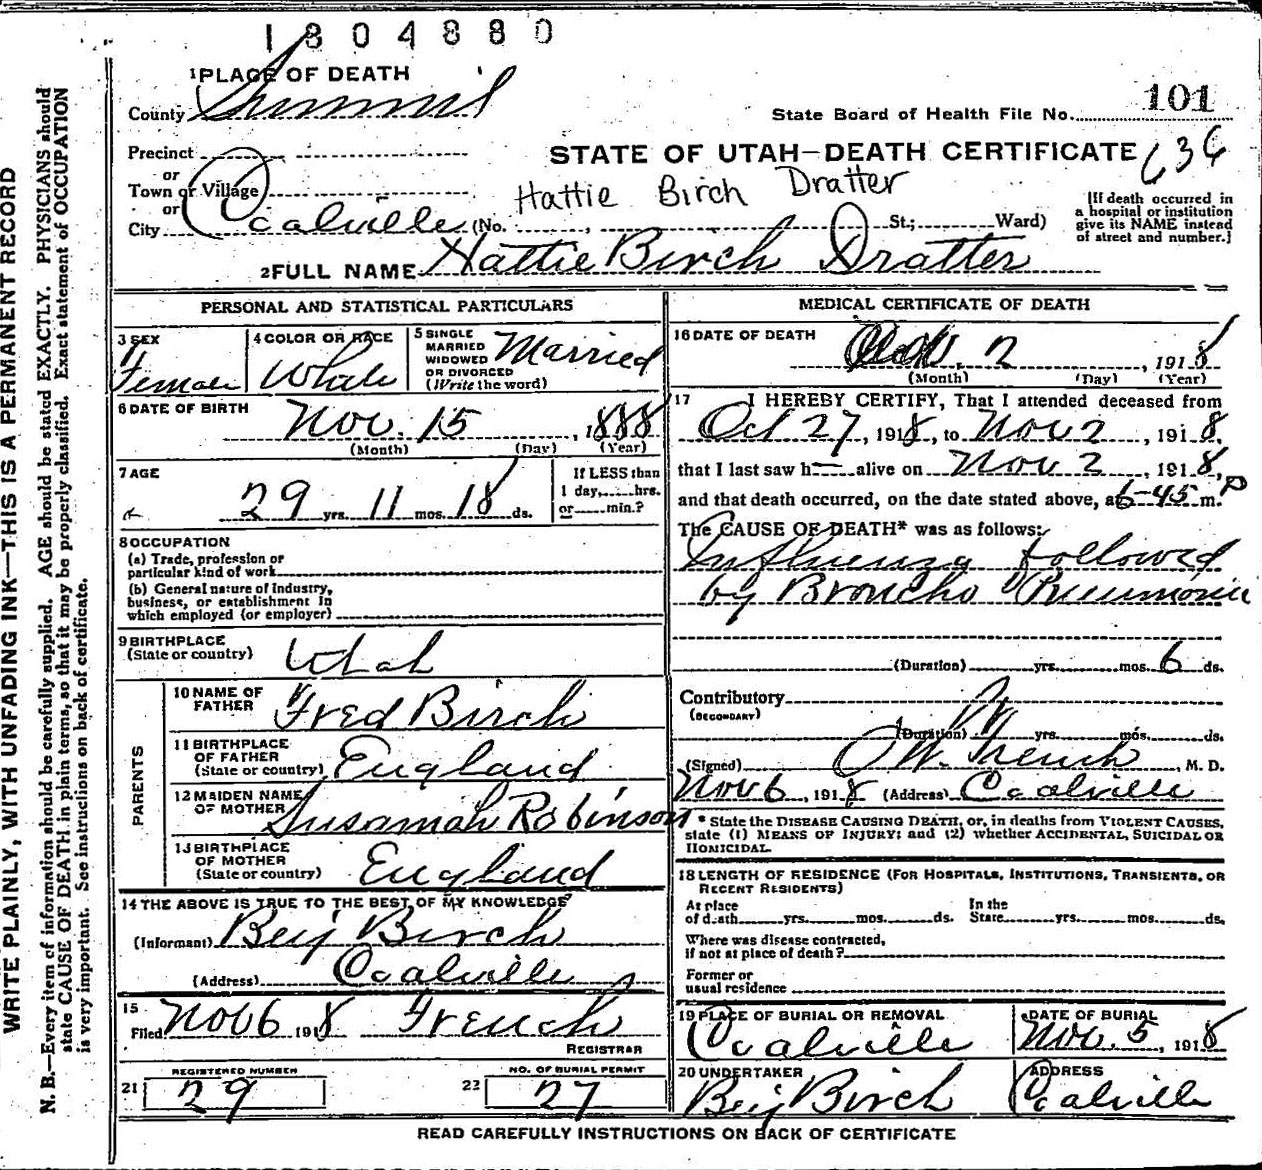 1804880
1 PLACE OF DEATH
County Summit
State Board of Health File No. 101
Precinct
STATE OF UTAH—DEATH CERTIFICATE 636
or
Town or Village
Hattie Birch Dratter
or
City Coalville (No. , St.; Ward)
[If death occurred in
a hospital or institution
give its NAME instead
of street and number.]
2 FULL NAME Hattie Birch Dratter
PERSONAL AND STATISTICAL PARTICULARS
3 SEX
Female
4 COLOR OR RACE
White
5 SINGLE
MARRIED
WIDOWED
OR DIVORCED
(Write the word)
Married
6 DATE OF BIRTH
Nov. 15, 1888
(Month) (Day) (Year)
7 AGE
29 yrs. 11 mos. 18 ds.
If LESS than
1 day, hrs.
or min.?
8 OCCUPATION
(a) Trade, profession or
particular kind of work
(b) General nature of Industry,
business, or establishment in
which employed (or employer)
9 BIRTHPLACE
(State or country)
Utah
PARENTS
10 NAME OF
FATHER
Fred Birch
11 BIRTHPLACE
OF FATHER
(State or country)
England
12 MAIDEN NAME
OF MOTHER
Susannah Robinson
13 BIRTHPLACE
OF MOTHER
(State or country)
England
14 THE ABOVE IS TRUE TO THE BEST OF MY KNOWLEDGE
(Informant) Benj Birch
(Address) Coalville
15
Filed Nov 6 1918 French
REGISTRAR
21 REGISTERED NUMBER
29
22 NO. OF BURIAL PERMIT
27
MEDICAL CERTIFICATE OF DEATH
16 DATE OF DEATH
2, 1918
(Month) (Day) (Year)
17 I HEREBY CERTIFY, That I attended deceased from
Oct 27, 1918, to Nov 2, 1918,
that I last saw h alive on Nov 2, 1918,
and that death occurred, on the date stated above, at 6-45 P m.
The CAUSE OF DEATH* was as follows:
Influenza followed
by Broncho Pneumonia
(Duration) yrs. mos. 6 ds.
Contributory
(SECONDARY)
(Duration) yrs. mos. ds.
(Signed) French, M. D.
Nov 6, 1918 (Address) Coalville
* State the DISEASE CAUSING DEATH, or, in deaths from VIOLENT CAUSES,
state (1) MEANS OF INJURY; and (2) whether ACCIDENTAL, SUICIDAL OR
HOMICIDAL.
18 LENGTH OF RESIDENCE (FOR HOSPITALS, INSTITUTIONS, TRANSIENTS, OR
RECENT RESIDENTS)
At place
of death yrs. mos. ds.
In the
State yrs. mos. ds.
Where was disease contracted,
if not at place of death?
Former or
usual residence
19 PLACE OF BURIAL OR REMOVAL
Coalville
DATE OF BURIAL
Nov. 5, 1918
20 UNDERTAKER
Benj Birch
ADDRESS
Coalville
READ CAREFULLY INSTRUCTIONS ON BACK OF CERTIFICATE
WRITE PLAINLY, WITH UNFADING INK—THIS IS A PERMANENT RECORD
N. B.—Every item of information should be carefully supplied. AGE should be stated EXACTLY. PHYSICIANS should
state CAUSE OF DEATH in plain terms, so that it may be properly classified. Exact statement of OCCUPATION
is very important. See instructions on back of certificate.